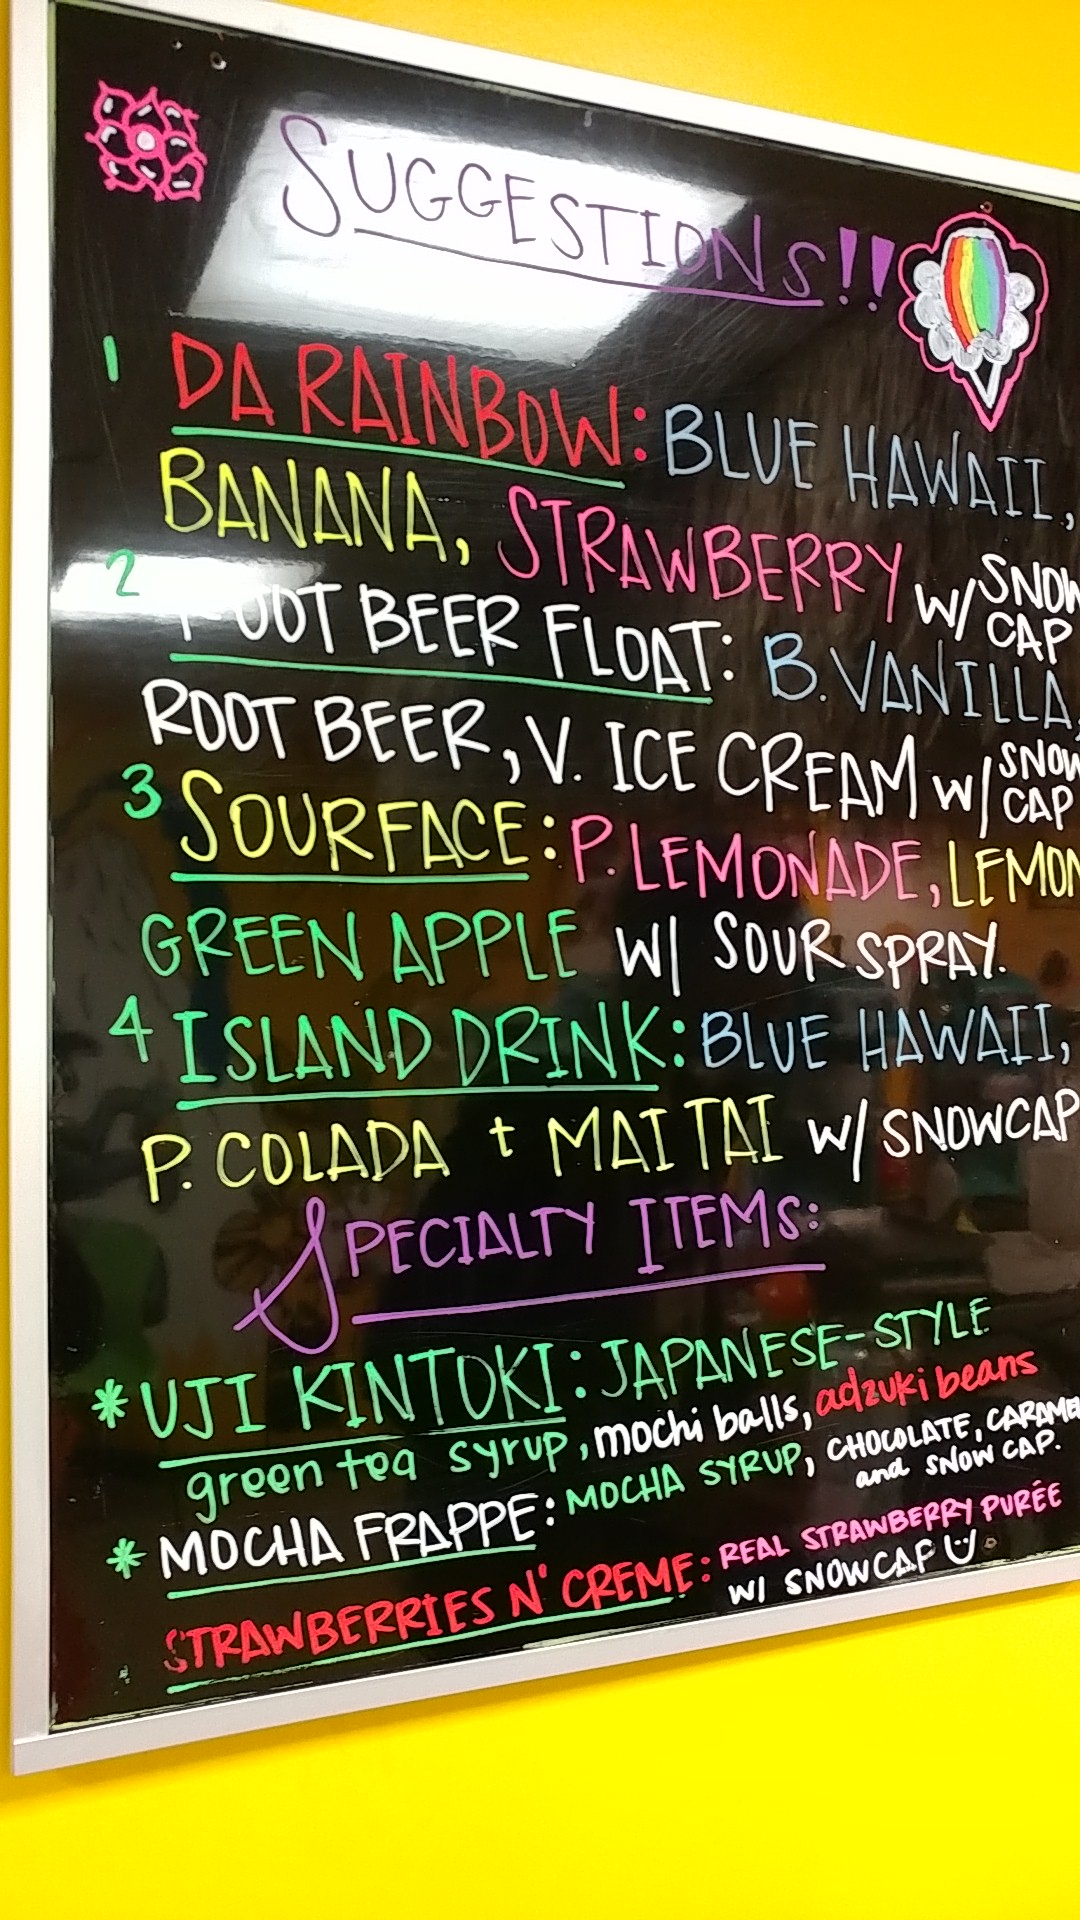 SUGGESTIONS!!
1 DA RAINBOW: BLUE HAWAII,
BANANA, STRAWBERRY W/ SNOW CAP
2 ROOT BEER FLOAT: B. VANILLA,
ROOT BEER, V. ICE CREAM W/ SNOW CAP
3 SOURFACE: P. LEMONADE, LEMON
GREEN APPLE W/ SOUR SPRAY.
4 ISLAND DRINK: BLUE HAWAII,
P. COLADA + MAI TAI W/ SNOWCAP
SPECIALTY ITEMS:
* UJI KINTOKI: JAPANESE-STYLE
green tea syrup, mochi balls, adzuki beans
* MOCHA FRAPPE: MOCHA SYRUP, CHOCOLATE, CARAMEL
and SNOW CAP.
STRAWBERRIES N' CREME: REAL STRAWBERRY PURÉE
W/ SNOWCAP